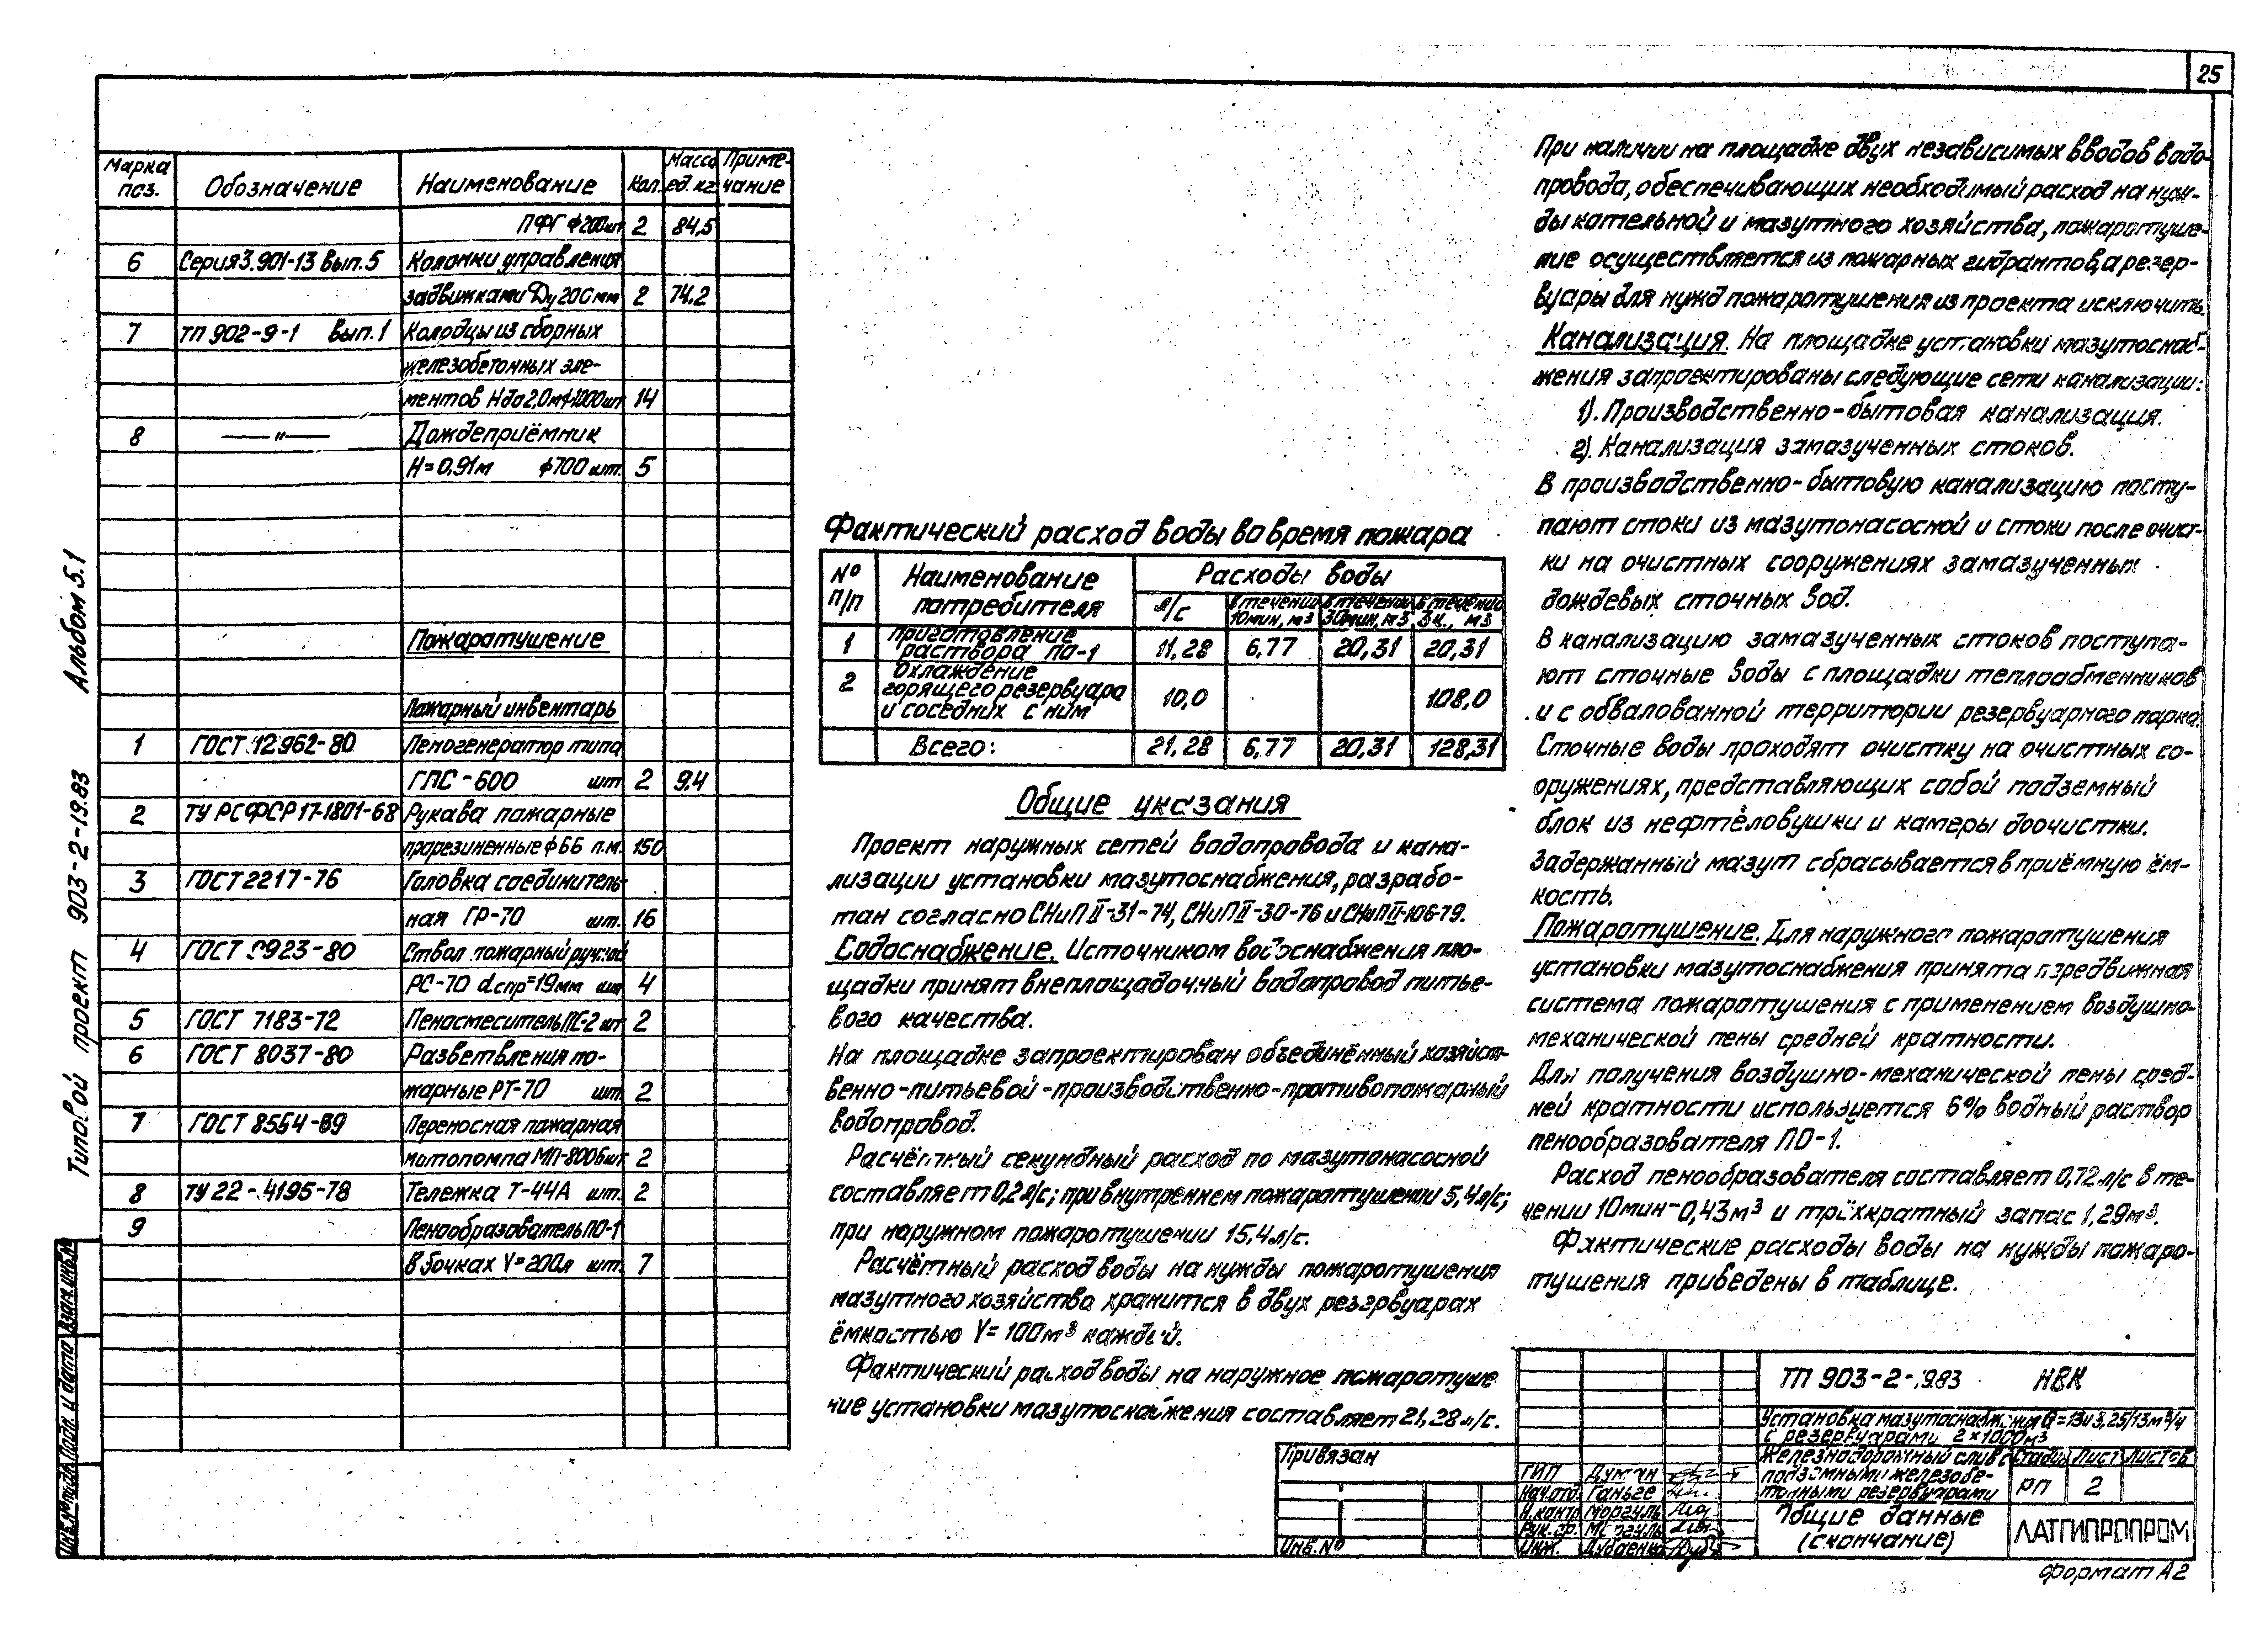 25
Марка поз. Обозначение Наименование Кол. Масса ед. кг Примечание
ПФГ ф200 шт 2 84,5
6 Серия 3.901-13 вып.5 Колонки управления
задвижками Ду 200 мм 2 74.2
7 ТП 902-9-1 вып.1 Колодцы из сборных
железобетонных эле-
ментов Н до 2,0м ф1000 шт 14
8 —"— Дождеприёмник
Н=0,91м ф700 шт. 5
Пожаротушение
Пожарный инвентарь
1 ГОСТ 12962-80 Пеногенератор типа
ГПС-600 шт 2 9.4
2 ТУ РСФСР 17-1801-68 Рукава пожарные
прорезиненные ф66 п.м. 150
3 ГОСТ 2217-76 Головка соединитель-
ная ГР-70 шт. 16
4 ГОСТ 9923-80 Ствол пожарный ручной
РС-70 dспр=19мм шт 4
5 ГОСТ 7183-72 Пеносмеситель ПС-2 шт 2
6 ГОСТ 8037-80 Разветвления по-
жарные РТ-70 шт. 2
7 ГОСТ 8554-69 Переносная пожарная
мотопомпа МП-800Б шт 2
8 ТУ 22-4195-78 Тележка Т-44А шт. 2
9 Пенообразователь ПО-1
в бочках V=200л шт. 7
Фактический расход воды во время пожара
№ п/п Наименование потребителя Расходы воды
л/с в течении 10мин, м3 в течении 30мин, м3 в течении 3ч., м3
1 приготовление раствора по-1 11,28 6,77 20,31 20,31
2 Охлаждение горящего резервуара и соседних с ним 10,0 108,0
Всего: 21,28 6,77 20,31 128,31
Общие указания
Проект наружных сетей водопровода и кана-
лизации установки мазутоснабжения, разрабо-
тан согласно СНиП II-31-74, СНиП II-30-76 и СНиП II-106-79.
Водоснабжение. Источником водоснабжения пло-
щадки принят внеплощадочный водопровод питье-
вого качества.
На площадке запроектирован объединённый хозяйст-
венно-питьевой-производственно-противопожарный
водопровод.
Расчётный секундный расход по мазутонасосной
составляет 0,2 л/с; при внутреннем пожаротушении 5,4 л/с;
при наружном пожаротушении 15,4 л/с.
Расчётный расход воды на нужды пожаротушения
мазутного хозяйства хранится в двух резервуарах
ёмкостью V=100м³ каждый.
Фактический расход воды на наружное пожаротуше
ние установки мазутоснабжения составляет 21,28 л/с.
При наличии на площадке двух независимых вводов водо-
провода, обеспечивающих необходимый расход на нуж-
ды котельной и мазутного хозяйства, пожаротуше-
ние осуществляется из пожарных гидрантов, а резер-
вуары для нужд пожаротушения из проекта исключить.
Канализация. На площадке установки мазутоснаб-
жения запроектированы следующие сети канализации:
1). Производственно-бытовая канализация.
2). Канализация замазученных стоков.
В производственно-бытовую канализацию посту-
пают стоки из мазутонасосной и стоки после очист-
ки на очистных сооружениях замазученных
дождевых сточных вод.
В канализацию замазученных стоков поступа-
ют сточные воды с площадки теплообменников
и с обвалованной территории резервуарного парка.
Сточные воды проходят очистку на очистных со-
оружениях, представляющих собой подземный
блок из нефтеловушки и камеры доочистки.
Задержанный мазут сбрасывается в приёмную ём-
кость.
Пожаротушение. Для наружного пожаротушения
установки мазутоснабжения принята передвижная
система пожаротушения с применением воздушно-
механической пены средней кратности.
Для получения воздушно-механической пены сред-
ней кратности используется 6% водный раствор
пенообразователя ПО-1.
Расход пенообразователя составляет 0,72 л/с в те-
чении 10мин-0,43м³ и трёхкратный запас 1,29м³.
Фактические расходы воды на нужды пожаро-
тушения приведены в таблице.
Типовой проект 903-2-19.83 Альбом 5.1
Инв.№ подл. Подп. и дата Взам.инв.№
Привязан
Инв.№
ГИП Думан
Нач.отд. Ганьге
Н.контр Моргуль
Рук.гр. Моргуль
Инж. Дубаенко
ТП 903-2-19.83 НВК
Установка мазутоснабжения Q=13 и 3,25/13м³/ч
с резервуарами 2×1000м³
Железнодорожный слив с
подземными железобе-
тонными резервуарами
Стадия Лист Листов
РП 2
Общие данные
(окончание)
ЛАТГИПРОПРОМ
Формат А2